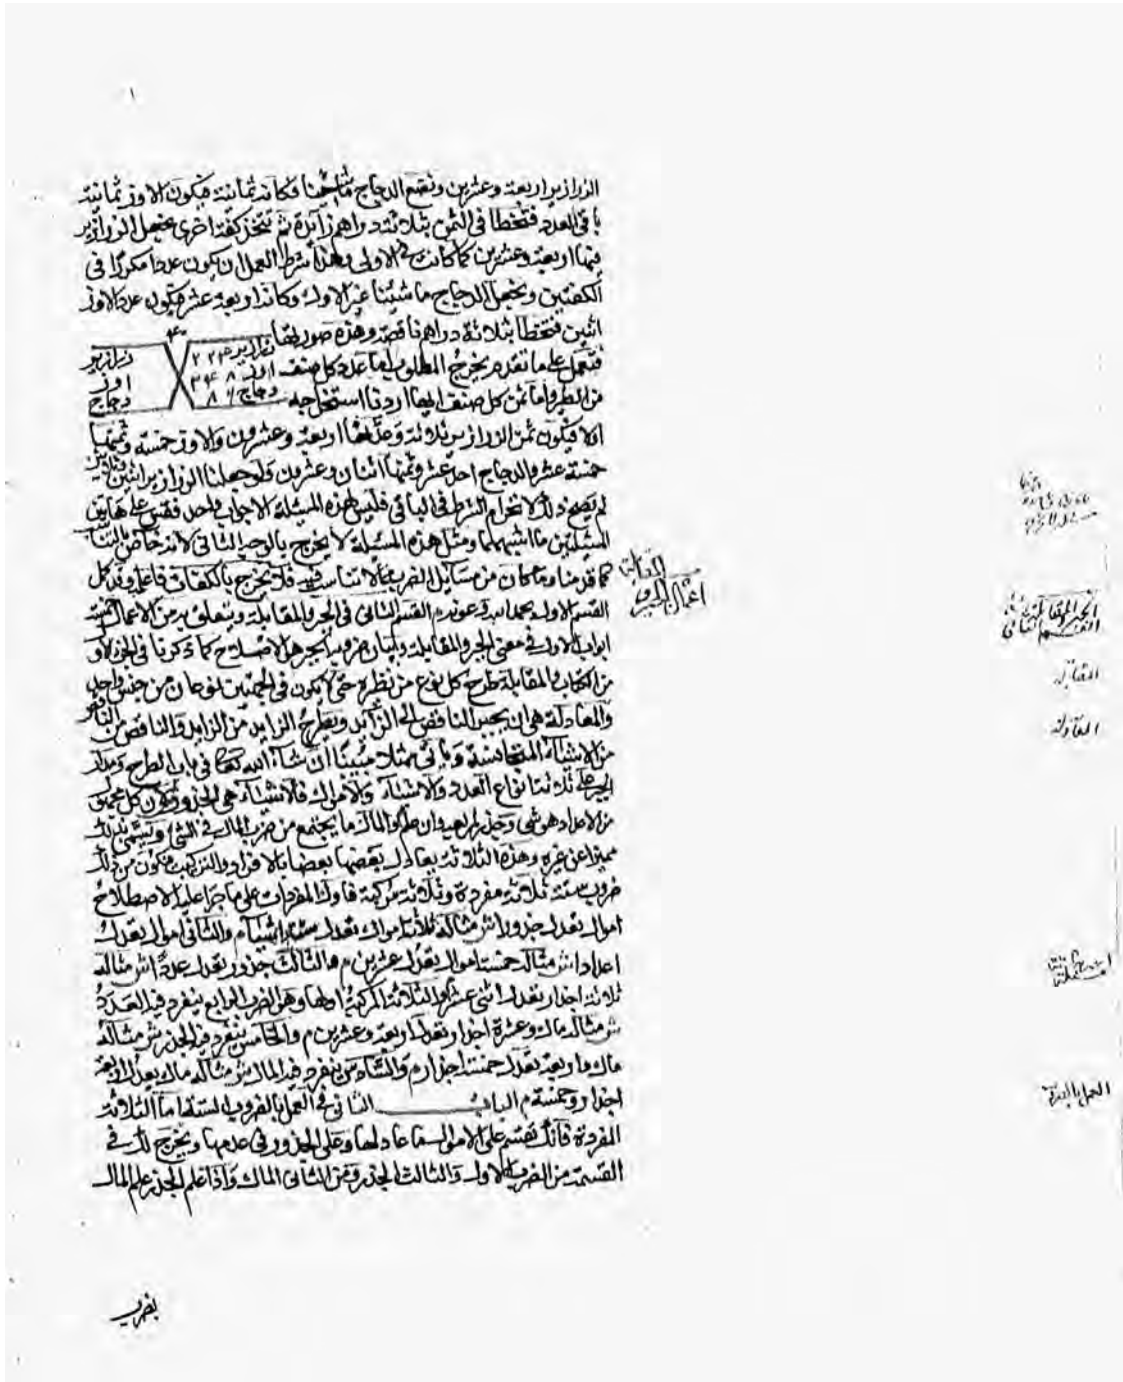 الزرازير اربعة وعشرين ونضع الدجاج ما شئنا فكانه ثمانية فيكون الاوز ثمانية
باقي العدد فتخطأ في الثمن بثلاثة دراهم زائدة ثم تتخذ كفة اخرى تجعل الزرازير
فيها اربعة وعشرين كما كانت في الاولى وهذا شرط العمل ان يكون عددا مكررا في
الكفتين وتجعل الدجاج ما شئنا غير الاول وكانه اربعة عشر فيكون عدد الاوز
اثنين فتخطأ بثلاثة دراهم ناقصة وهذه صورتها
فتعمل على ما تقدم يخرج المطلوب اما عدد كل صنف
زرازير
اوز
دجاج
زرازير
اوز
دجاج
من الطير واما ثمن كل صنف ايهما اردنا استخراجه
اولا فيكون ثمن الزرازير ثلاثة وعددها اربعة وعشرون والاوز خمسة وثمنها
خمسة عشر والدجاج احد عشر وثمنها اثنان وعشرون ولو جعلنا الزرازير اثنين
لم يصح ذلك لانخرام الشرط في الباقي فليس لهذه المسئلة الا جواب واحد فقس على هاتين
المسئلتين ما اشبههما ومثل هذه المسئلة لا يخرج بالوجه الثاني لانه خاص بالتناسب
كما قدمنا وما كان من مسائل الضرب مما لا تناسب فيه فلا يخرج بالكفات فاعلمه وقد كمل
القسم الاول بحمد الله وعونه م القسم الثاني في الجبر والمقابلة ويتعلق به من الاعمال خمسة
ابواب الاول في معنى الجبر والمقابلة وبيان ضروبه الجبر هو الاصلاح كما ذكرنا في الجزء الاول
من الكتاب والمقابلة طرح كل نوع من نظيره حتى لا يكون في الجهتين نوعان من جنس واحد
والمعادلة هي ان يجبر الناقص الى الزائد ويطرح الزايد من الزايد والناقص من الناقص
من الاشياء المتجانسة وياتي ممثلا مبينا ان شاء الله تعالى في باب الطرح ومدار
الجبر على ثلاثة انواع العدد والاشياء والاموال فالاشياء هي الجذور
من الاعداد هو شيء وجذر
مميزا عن غيره وهذه الثلاثة يعادل بعضها بعضا بالافراد والتركيب فتكون من ذلك
ضروب ستة ثلاثة مفردة وثلاثة مركبة فاول المفردات على ما جرا عليه الاصطلاح
اموال تعدل جذورا ش مثاله ثلاثة اموال تعدل ستة اشياء م والثاني اموال تعدل
اعدادا ش مثاله خمسة اموال تعدل عشرين م والثالث جذور تعدل عددا ش مثاله
ثلاثة اجذار تعدل اثني عشر والثلاثة المركبة اولها وهو الضرب الرابع ينفرد فيه العدد
ش مثاله مال وعشرة اجذار تعدل اربعة وعشرين م والخامس ينفرد فيه الجذر ش مثاله
مال واربعة تعدل خمسة اجذار م والسادس ينفرد فيه المال ش مثاله مال يعدل اربعة
اجذار وخمسة م الباب الثاني في العمل بالضروب الستة اما الثلاثة
المفردة فانك تقسم على الاموال ما عادلها وعلى الجذور في عدمها ويخرج لك في
القسمة من الضرب الاول والثالث الجذر ومن الثاني المال واذا علم الجذر علم المال
بضرب
القسم الثاني
المقابلة
المعادلة